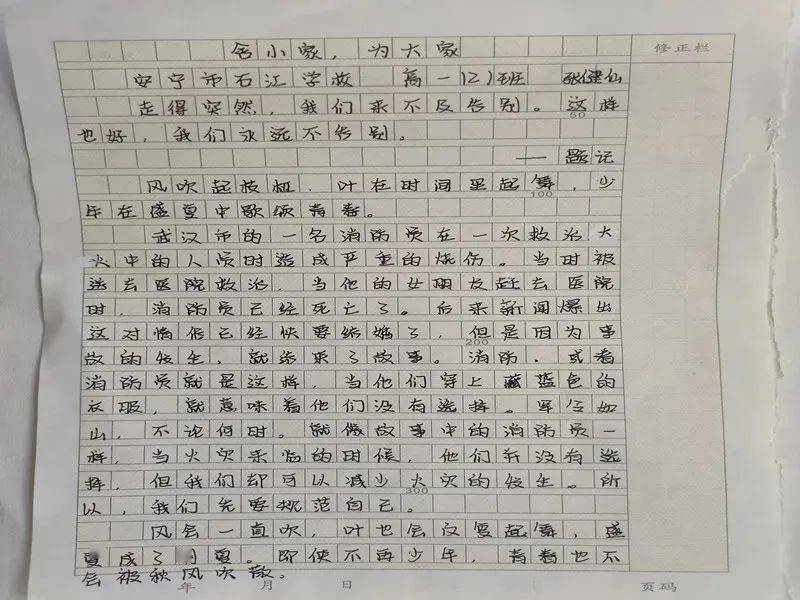 舍小家，为大家
修正栏
安宁市石江学校 高一(2)班 张健仙
走得突然，我们来不及告别。这样
50
也好，我们永远不告别。
——题记
风吹起枝桠，叶在时间里起舞，少
100
年在盛夏中歌颂青春。
武汉市的一名消防员在一次救治大
火中的人员时造成严重的烧伤。当时被
送去医院救治，当他的女朋友赶去医院
时，消防员已经死亡了。后来新闻爆出
这对情侣已经快要结婚了，但是因为事
200
故的发生，就结束了故事。消防，或者
消防员就是这样，当他们穿上藏蓝色的
衣服，就意味着他们没有选择。军令如
山，不论何时。就像故事中的消防员一
样，当火灾来临的时候，他们并没有选
择，但我们却可以减少火灾的发生。所
300
以，我们先要规范自己。
风会一直吹，叶也会反复起舞，盛
夏成了夏。即使不再少年，青春也不
会被秋风吹散。
年 月 日 页码